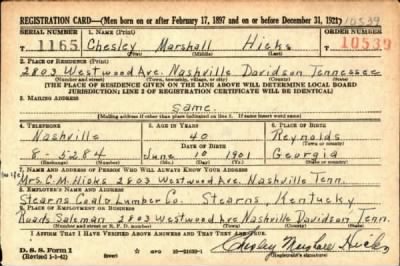 REGISTRATION CARD—(Men born on or after February 17, 1897 and on or before December 31, 1921) 10539
SERIAL NUMBER 1. NAME (Print) ORDER NUMBER
T 1165 Chesley Marshall Hicks T 10539
(First) (Middle) (Last)
2. PLACE OF RESIDENCE (Print)
2803 Westwood Ave. Nashville Davidson Tennessee
(Number and street) (Town, township, village, or city) (County) (State)
(THE PLACE OF RESIDENCE GIVEN ON THE LINE ABOVE WILL DETERMINE LOCAL BOARD
JURISDICTION; LINE 2 OF REGISTRATION CERTIFICATE WILL BE IDENTICAL)
3. MAILING ADDRESS
Same.
(Mailing address if other than place indicated on line 2. If same insert word same)
4. TELEPHONE 5. AGE IN YEARS 6. PLACE OF BIRTH
Nashville 40 Reynolds
DATE OF BIRTH (Town or county)
8-5284 June 10 1901 Georgia
(Exchange) (Number) (Mo.) (Day) (Yr.) (State or country)
7. NAME AND ADDRESS OF PERSON WHO WILL ALWAYS KNOW YOUR ADDRESS
(wife)
Mrs. C. M. Hicks 2803 Westwood Ave. Nashville Tenn.
8. EMPLOYER'S NAME AND ADDRESS
Stearns Coal & Lumber Co. Stearns, Kentucky
9. PLACE OF EMPLOYMENT OR BUSINESS
Roads Salesman 2803 Westwood Ave Nashville Davidson Tenn.
(Number and street or R. F. D. number) (Town) (County) (State)
I AFFIRM THAT I HAVE VERIFIED ABOVE ANSWERS AND THAT THEY ARE TRUE.
D. S. S. Form 1
(Revised 1-1-42) (over) 16—21630-1 Chesley Marshall Hicks
(Registrant's signature)